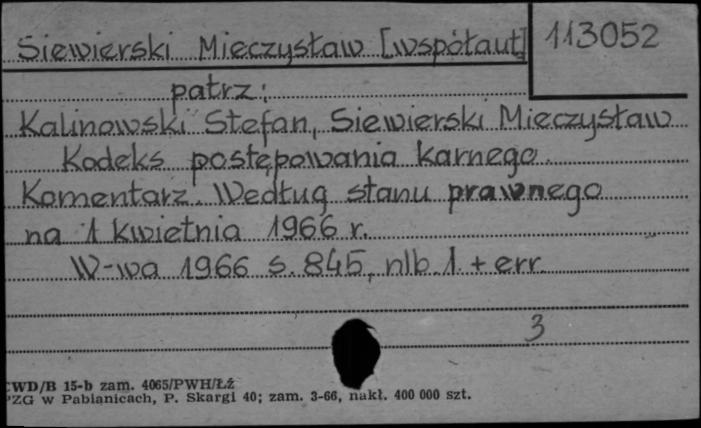 Siewierski Mieczysław [współaut] 113052
patrz:
Kalinowski Stefan, Siewierski Mieczysław
Kodeks postępowania karnego.
Komentarz. Według stanu prawnego
na 1 kwietnia 1966 r.
W-wa 1966 s. 845, nlb. 1. + err.
3
WD/B 15-b zam. 4065/PWH/Łź
PZG w Pabianicach, P. Skargi 40; zam. 3-66, nakł. 400 000 szt.